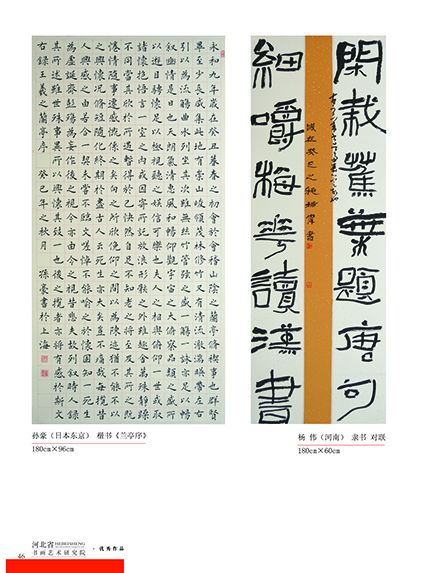 永和九年歲在癸丑暮春之初會於會稽山陰之蘭亭脩禊事也群賢
畢至少長咸集此地有崇山峻領茂林修竹又有清流激湍暎帶左右
引以為流觴曲水列坐其次雖無絲竹管弦之盛一觴一詠亦足以暢
叙幽情是日也天朗氣清惠風和暢仰觀宇宙之大俯察品類之盛所
以遊目騁懷足以極視聽之娛信可樂也夫人之相與俯仰一世或取
諸懷抱悟言一室之內或因寄所託放浪形骸之外雖趣舍萬殊靜躁
不同當其欣於所遇暫得於己怏然自足不知老之將至及其所之既
惓情隨事遷感慨係之矣向之所欣俛仰之間以為陳迹猶不能不以
之興懷況脩短隨化終期於盡古人云死生亦大矣豈不痛哉每攬昔
人興感之由若合一契未嘗不臨文嗟悼不能喻之於懷固知一死生
為虛誕齊彭殤為妄作後之視今亦由今之視昔悲夫故列叙時人錄
其所述雖世殊事異所以興懷其致一也後之攬者亦將有感於斯文
右錄王羲之蘭亭序 癸巳年之秋月 孫豪書於上海
閑栽蕉葉題唐句
細嚼梅花讀漢書
歲在癸巳之秋楊偉書
孙豪（日本东京） 楷书《兰亭序》
180cm×96cm
杨 伟（河南） 隶书 对联
180cm×60cm
河北省 HEBEISHENG
书画艺术研究院 · 优秀作品
46